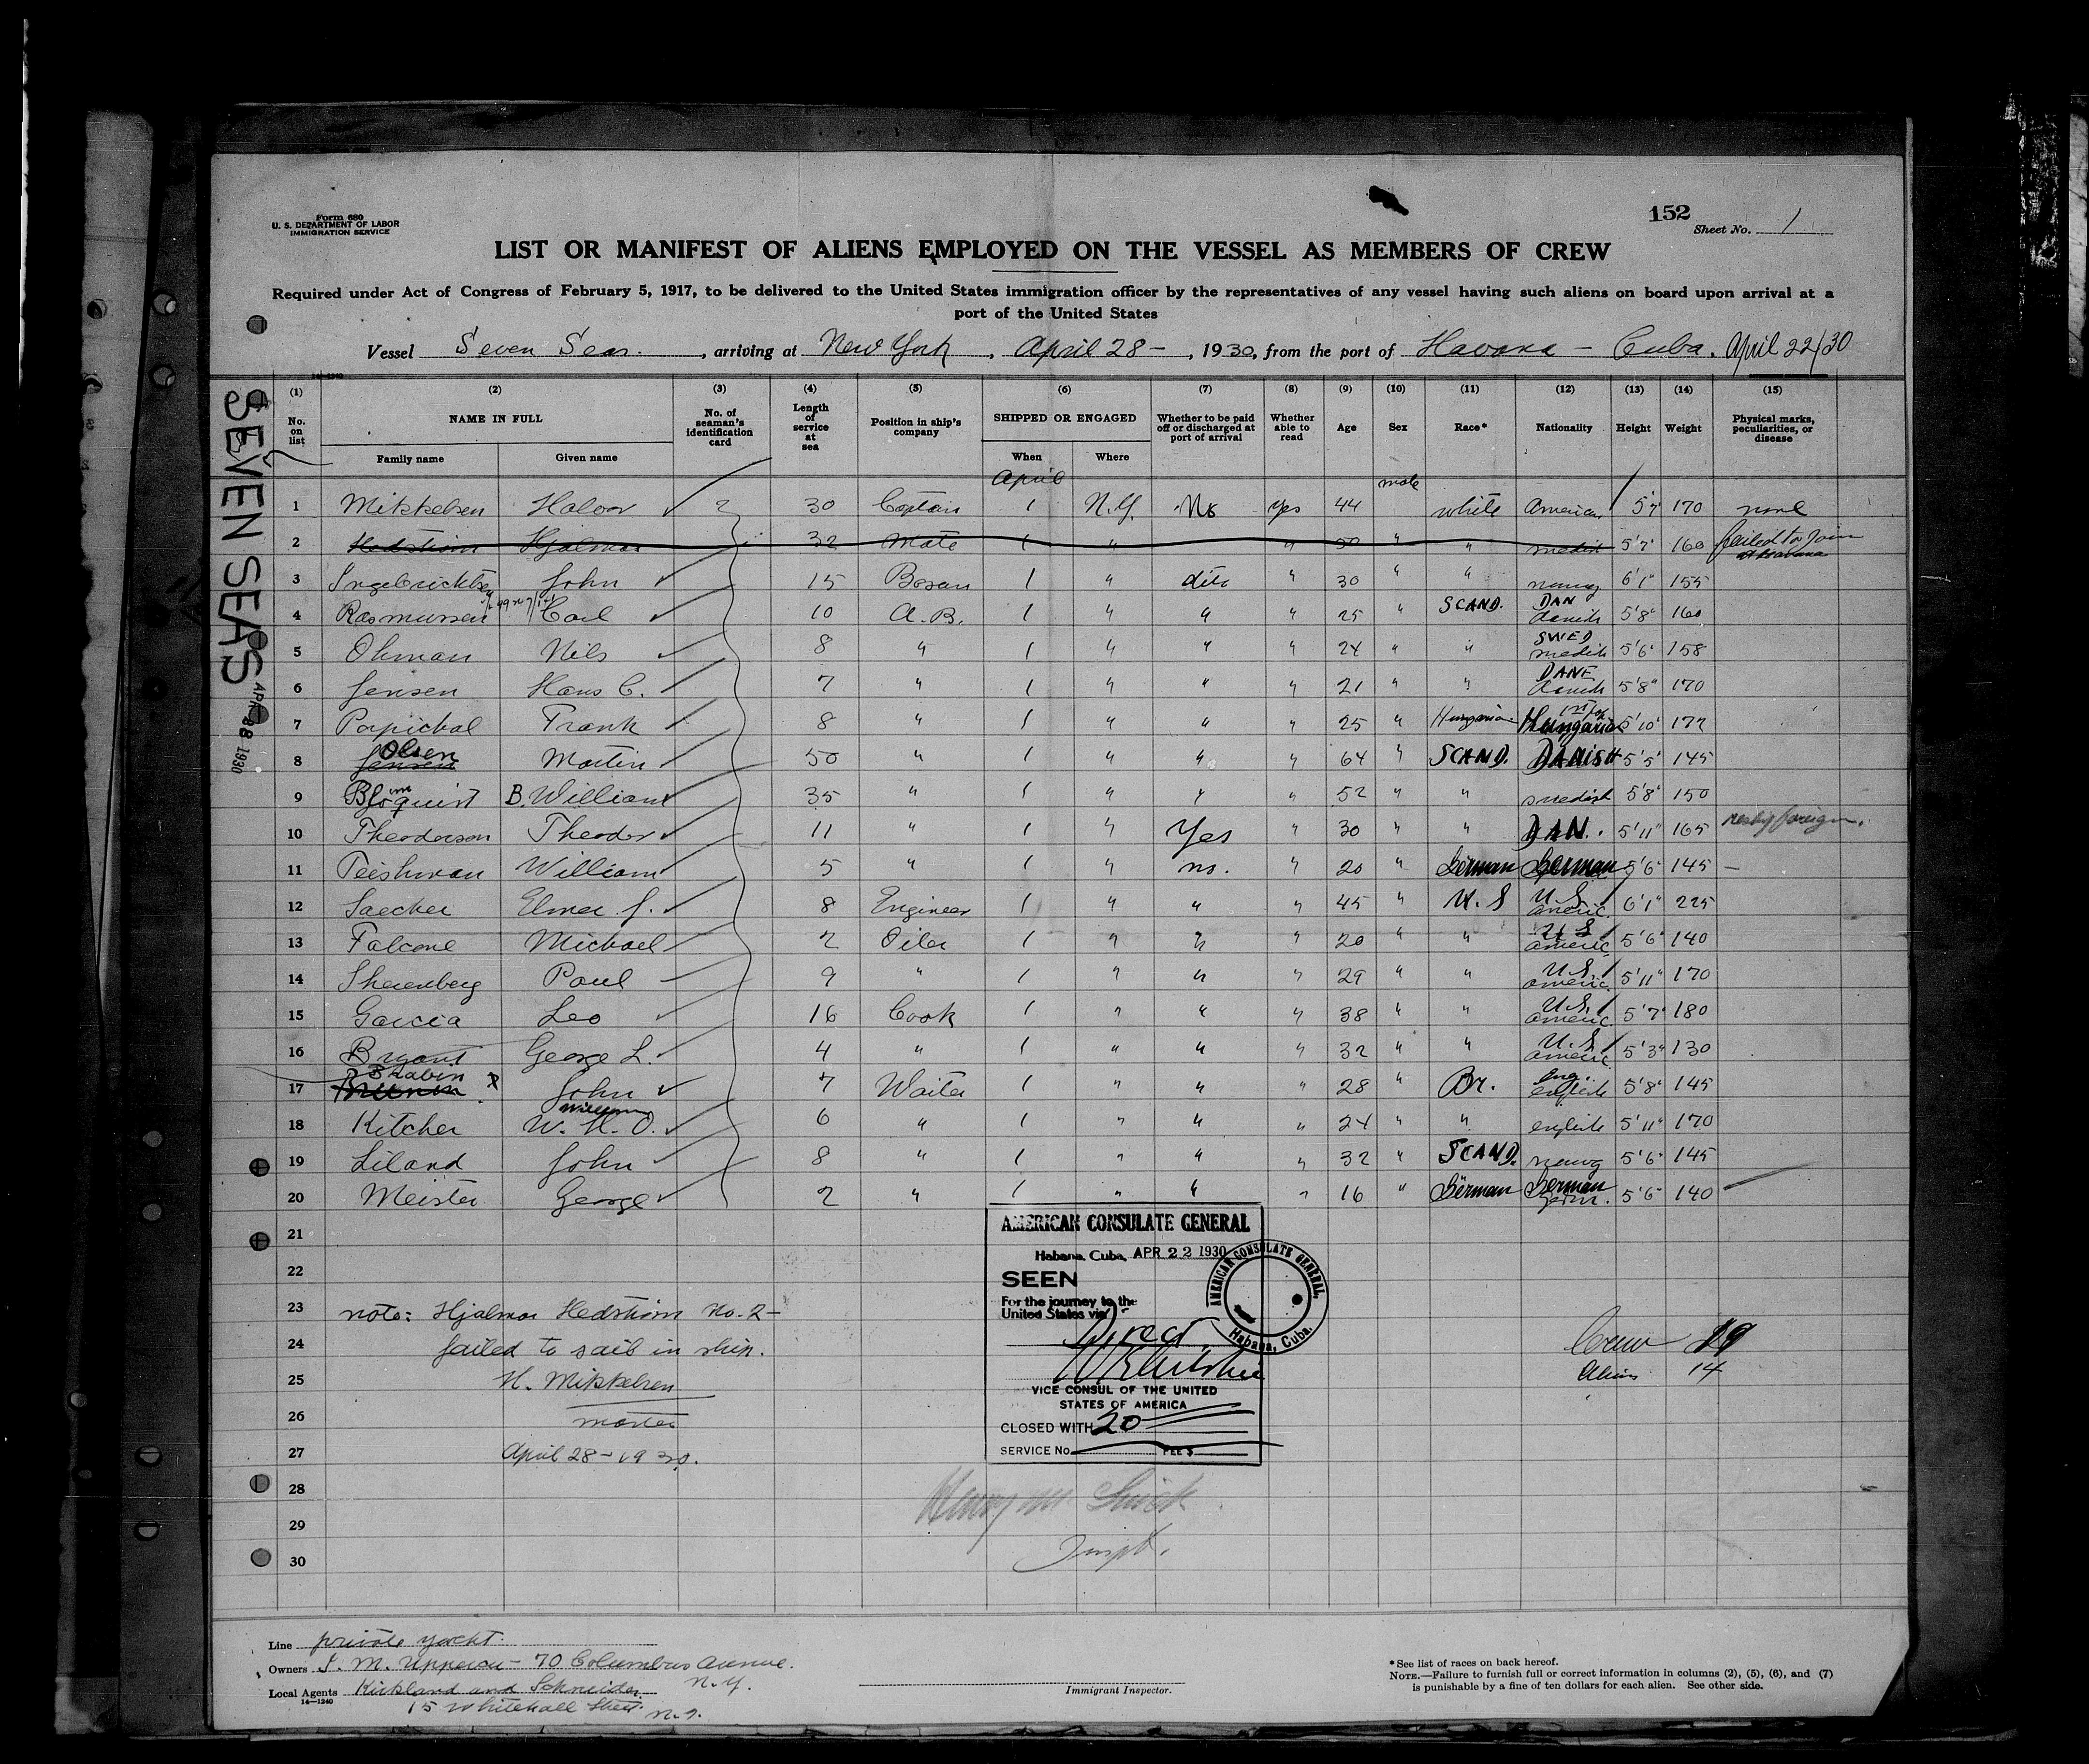 Form 680
U. S. DEPARTMENT OF LABOR
IMMIGRATION SERVICE
152
Sheet No. 1
LIST OR MANIFEST OF ALIENS EMPLOYED ON THE VESSEL AS MEMBERS OF CREW
Required under Act of Congress of February 5, 1917, to be delivered to the United States immigration officer by the representatives of any vessel having such aliens on board upon arrival at a
port of the United States
Vessel Seven Seas. , arriving at New York , April 28 - , 1930, from the port of Havana - Cuba. April 22/30
14-1240
SEVEN SEAS APR 28 1930
(1) (2) (3) (4) (5) (6) (7) (8) (9) (10) (11) (12) (13) (14) (15)
No. on list
NAME IN FULL
Family name Given name
No. of seaman's identification card
Length of service at sea
Position in ship's company
SHIPPED OR ENGAGED
When Where
Whether to be paid off or discharged at port of arrival
Whether able to read
Age
Sex
Race*
Nationality
Height
Weight
Physical marks, peculiarities, or disease
April male
1 Mikkelsen Halvor 30 Captain 1 N.Y. No yes 44 white American 5'7 170 none
2 Hedstrom Hjalmar 32 Mate 1 " " 50 " " 5'7" 160 failed to join at Havana
3 Ingebricktsen John 15 Bosun 1 " dito " 30 " " norwg 6'1" 155
4 Rasmussen Carl 10 A.B. 1 " " " 25 " SCAND. DAN danish 5'8" 160
5 Ohman Nils 8 " 1 " " " 24 " " SWED swedish 5'6" 158
6 Jensen Hans C. 7 " 1 " " " 21 " " DANE danish 5'8" 170
7 Papichal Frank 8 " 1 " " " 25 " Hungarian Hungarian 5'10" 172
8 Jensen Olsen Martin 50 " 1 " " " 64 " SCAND. DANISH 5'5" 145
9 B. William 35 " 1 " " " 52 " " swedish 5'8" 150
10 Theodorson Theodor 11 " 1 " Yes " 30 " " DAN. 5'11" 165 foreign.
11 Teishman William 5 " 1 " no. " 20 " German German 5'6" 145 -
12 Saecker Elmer J. 8 Engineer 1 " " " 45 " U.S U.S. americ. 6'1" 225
13 Falcone Michael 2 Oiler 1 " " " 20 " " U.S. americ. 5'6" 140
14 Sherenberg Paul 9 " 1 " " " 29 " " U.S. americ. 5'11" 170
15 Garcia Leo 16 Cook 1 " " " 38 " " U.S. americ. 5'7" 180
16 Bryant George L. 4 " 1 " " " 32 " " U.S. americ. 5'3" 130
17 Brabin John 7 Waiter 1 " " " 28 " Br. eng. english 5'8" 145
18 Kitcher William W. H. O. 6 " 1 " " " 24 " " english 5'11" 170
19 Liland John 8 " 1 " " " 32 " SCAND. norwg 5'6" 145
20 Meister George 2 " 1 " " " 16 " German German germ. 5'6" 140
21
22
23 note: Hjalmar Hedstrom no. 2 -
24 failed to sail in ship.
25 H. Mikkelsen
26 master
27 April 28 - 1930.
28
29
30
AMERICAN CONSULATE GENERAL
Habana, Cuba, APR 22 1930
SEEN
For the journey to the
United States via
Direct
VICE CONSUL OF THE UNITED
STATES OF AMERICA
CLOSED WITH 20
SERVICE No. FEE $
AMERICAN CONSULATE GENERAL, Habana, Cuba.
Crew 19
Aliens 14
Line private yacht.
Owners 70 Columbus Avenue. N.Y.
Local Agents Kirkland and Schneider.
15 Whitehall Street. N.Y.
14-1240
Immigrant Inspector.
*See list of races on back hereof.
NOTE.—Failure to furnish full or correct information in columns (2), (5), (6), and (7)
is punishable by a fine of ten dollars for each alien. See other side.